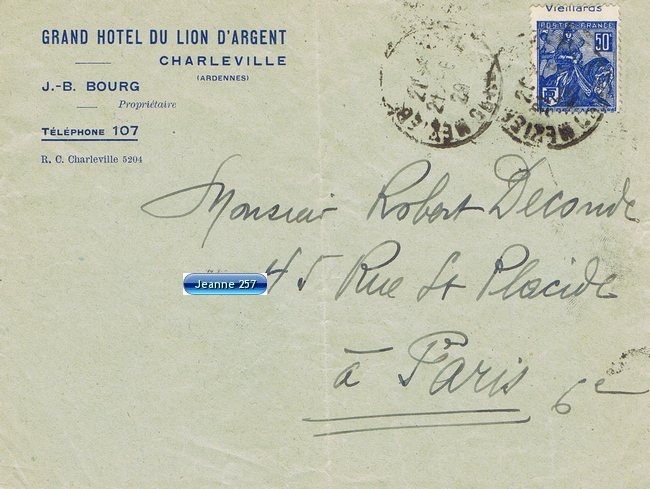 GRAND HOTEL DU LION D'ARGENT
CHARLEVILLE
(ARDENNES)
J.-B. BOURG
Propriétaire
TÉLÉPHONE 107
R. C. Charleville 5204
Vieillards
POSTES FRANCE
50c
RF
21
29
Monsieur Robert Deconde
45 Rue St Placide
Jeanne 257
à Paris 6e